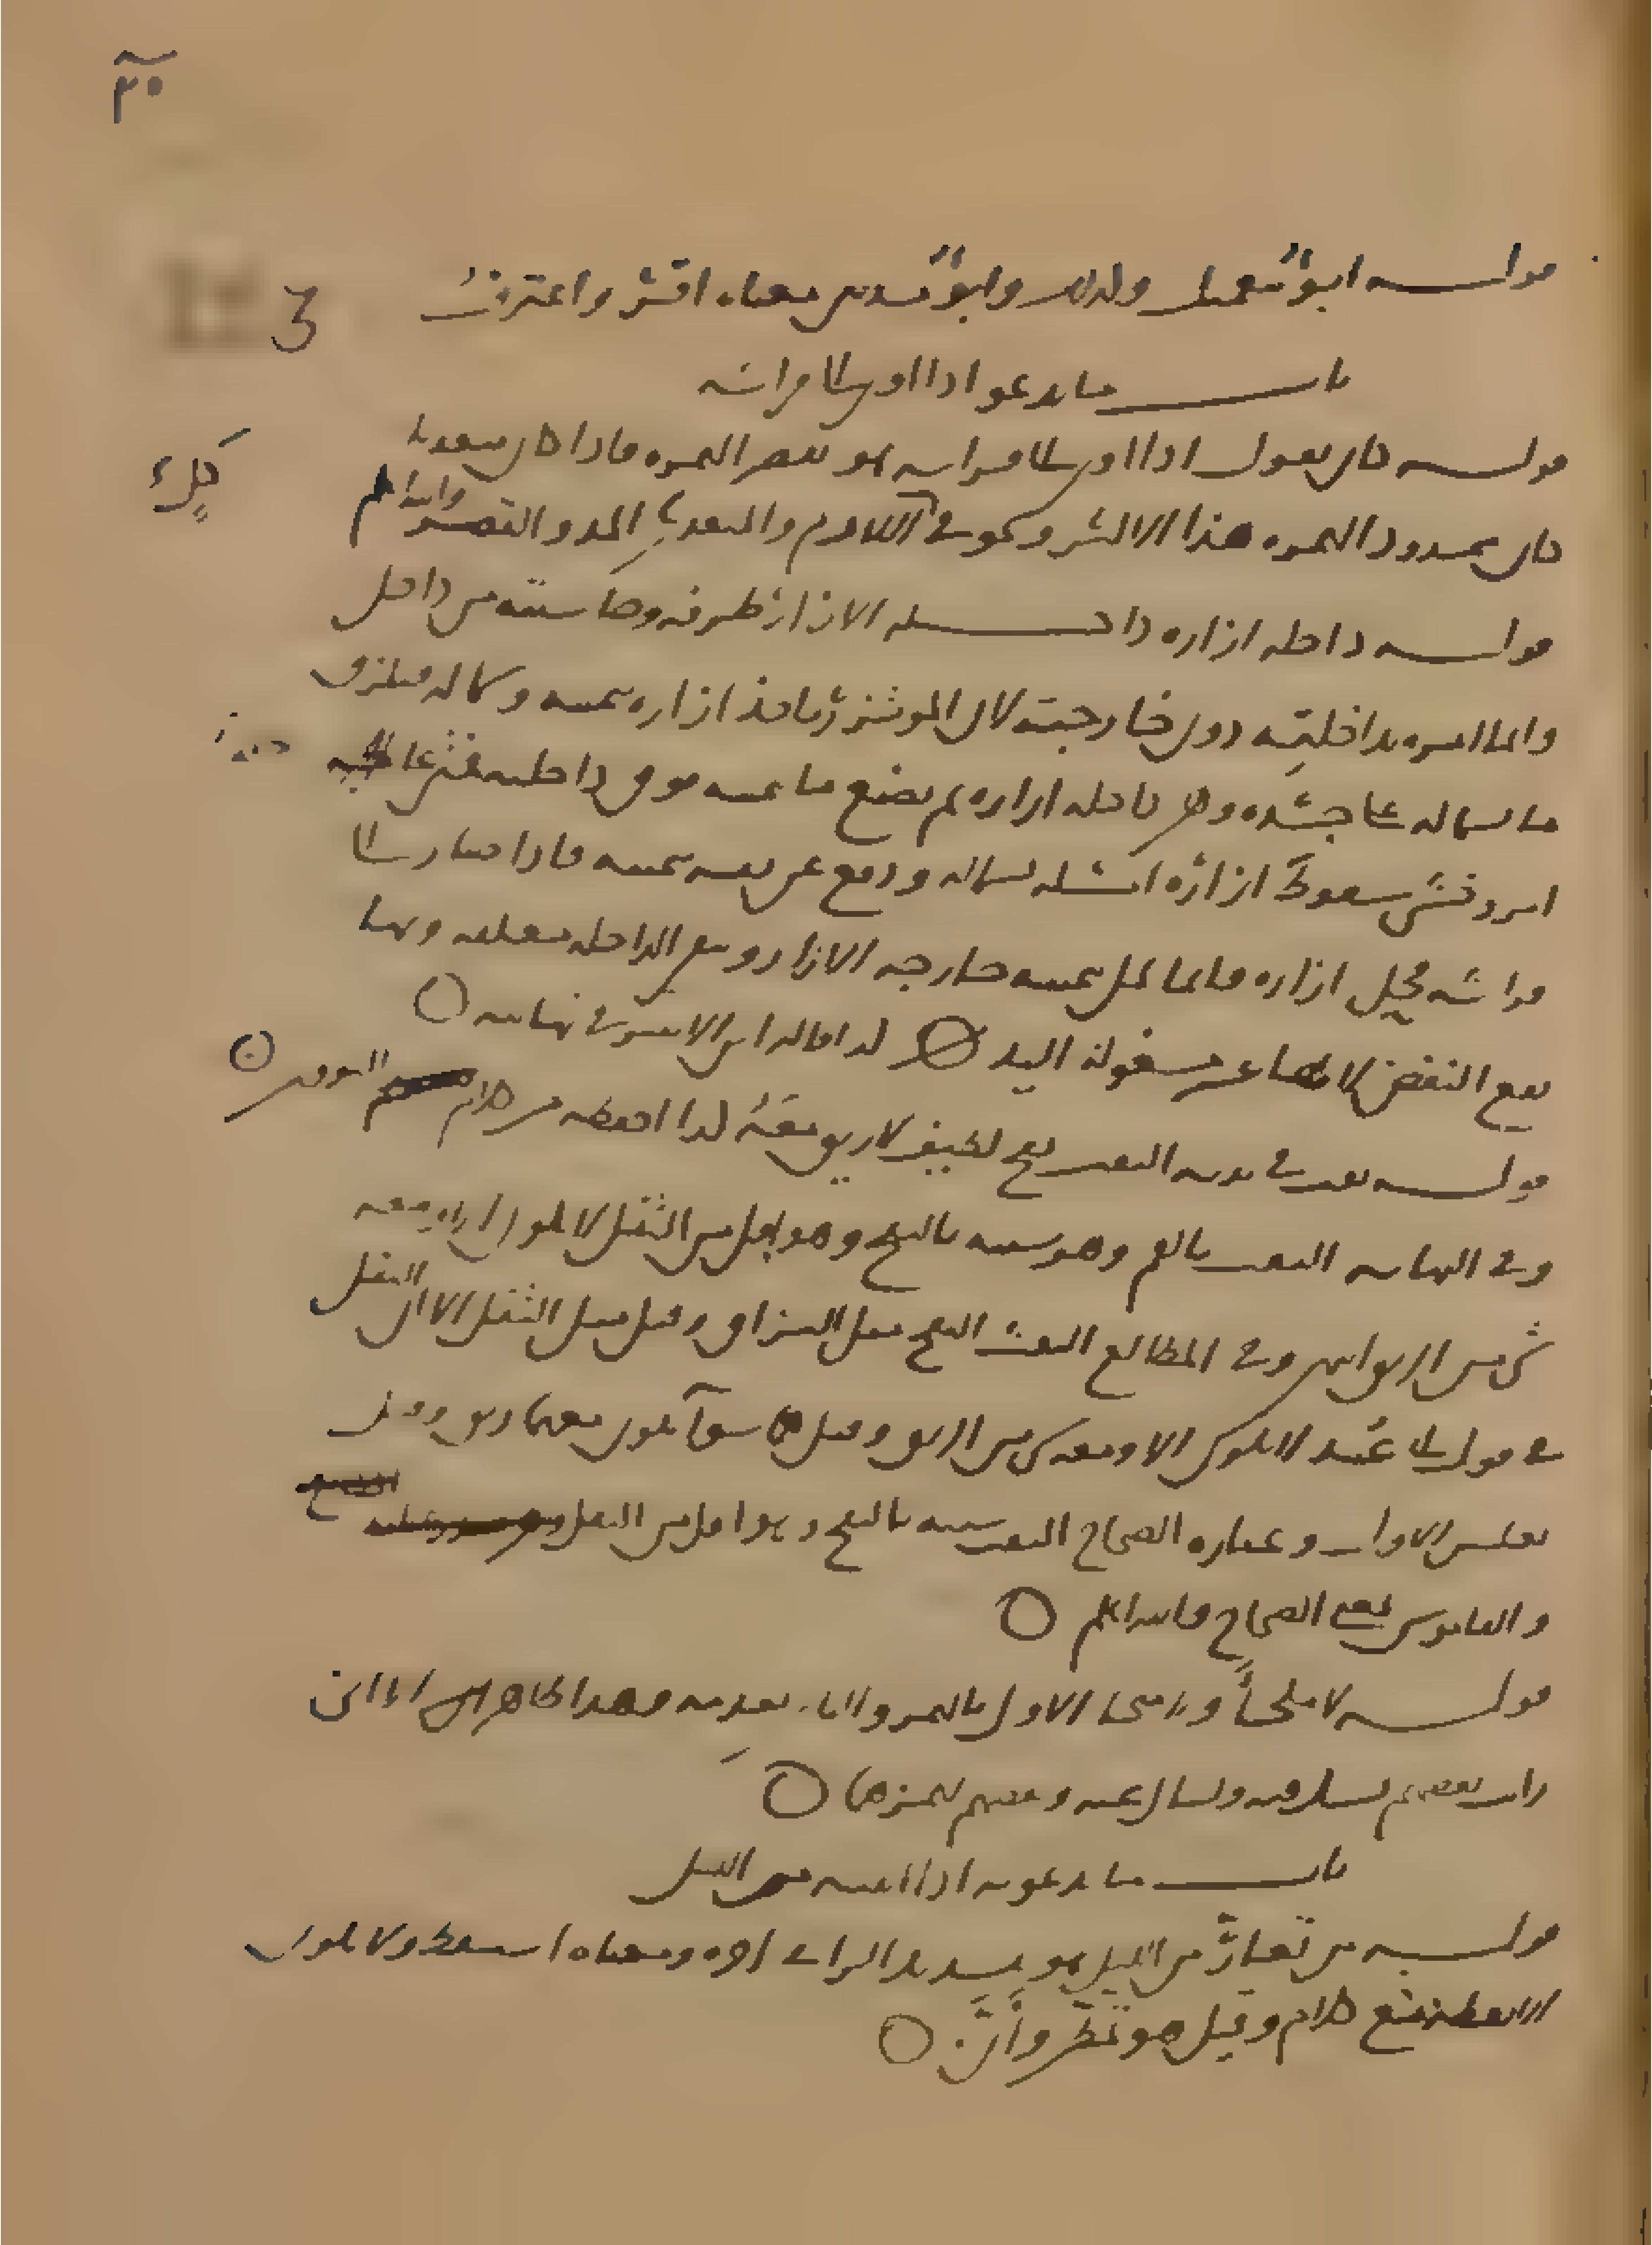 ٣٠
قوله ابوء بنعمتك ولذلك وابوء بذنبي معناه اقر واعترف
3
باب ما يدعو اذا اوى الى فراشه
قوله كان يقول اذا اوى الى فراشه هو بقصر الهمزة فاذا كان متعديا
كان بممدود الهمزة هذا الاكثر ويجوز في اللازم والمتعدي المد والقصر والله اعلم
قوله داخلة ازاره داخلة الازار طرفه وحاشيته من داخل
وانما امره بداخلته دون خارجته لان المؤتزر ياخذ ازاره بيمينه وشماله فيلزق
ما بشماله على جسده وهي داخلة ازاره ثم يضع ما بيمينه فوق داخلته فمتى عاجله
امر وخشي سقوط ازاره امسكه بشماله ودفع عن نفسه بيمينه فاذا صار الى
فراشه فحل ازاره فانما يحل بيمينه خارجة الازار وتبقى الداخلة معلقة وبها
يقع النفض لانها غير مشغولة اليد كذا قاله ابن الاثير في نهايته
قوله نفث في يديه النفث نفخ لطيف لا ريق معه كذا احفظه من كلام النووي
وفي النهاية النفث بالفم وهو شبيه بالنفخ وهو اقل من التفل لا يكون الا ومعه
شيء من الريق وفي المطالع النفث النفخ مثل البزاق وقيل مثل التفل الا ان التفل
في قول ابي عبيد لا يكون الا ومعه شيء من الريق وقيل هما سواء يكون معهما ريق وقيل
بعكس الاول وعبارة الصحاح النفث شبيه بالنفخ وهو اقل من التفل
والقاموس تبع الصحاح والله اعلم
قوله لا ملجأ ولا منجا الاول بالهمز والثاني
رايت بعضهم
باب ما يدعو به اذا انتبه من الليل
قوله من تعار من الليل هو بتشديد الراء اخره ومعناه استيقظ ولا يكون
الا يقظة مع كلام وقيل هو تمطى وأنّ